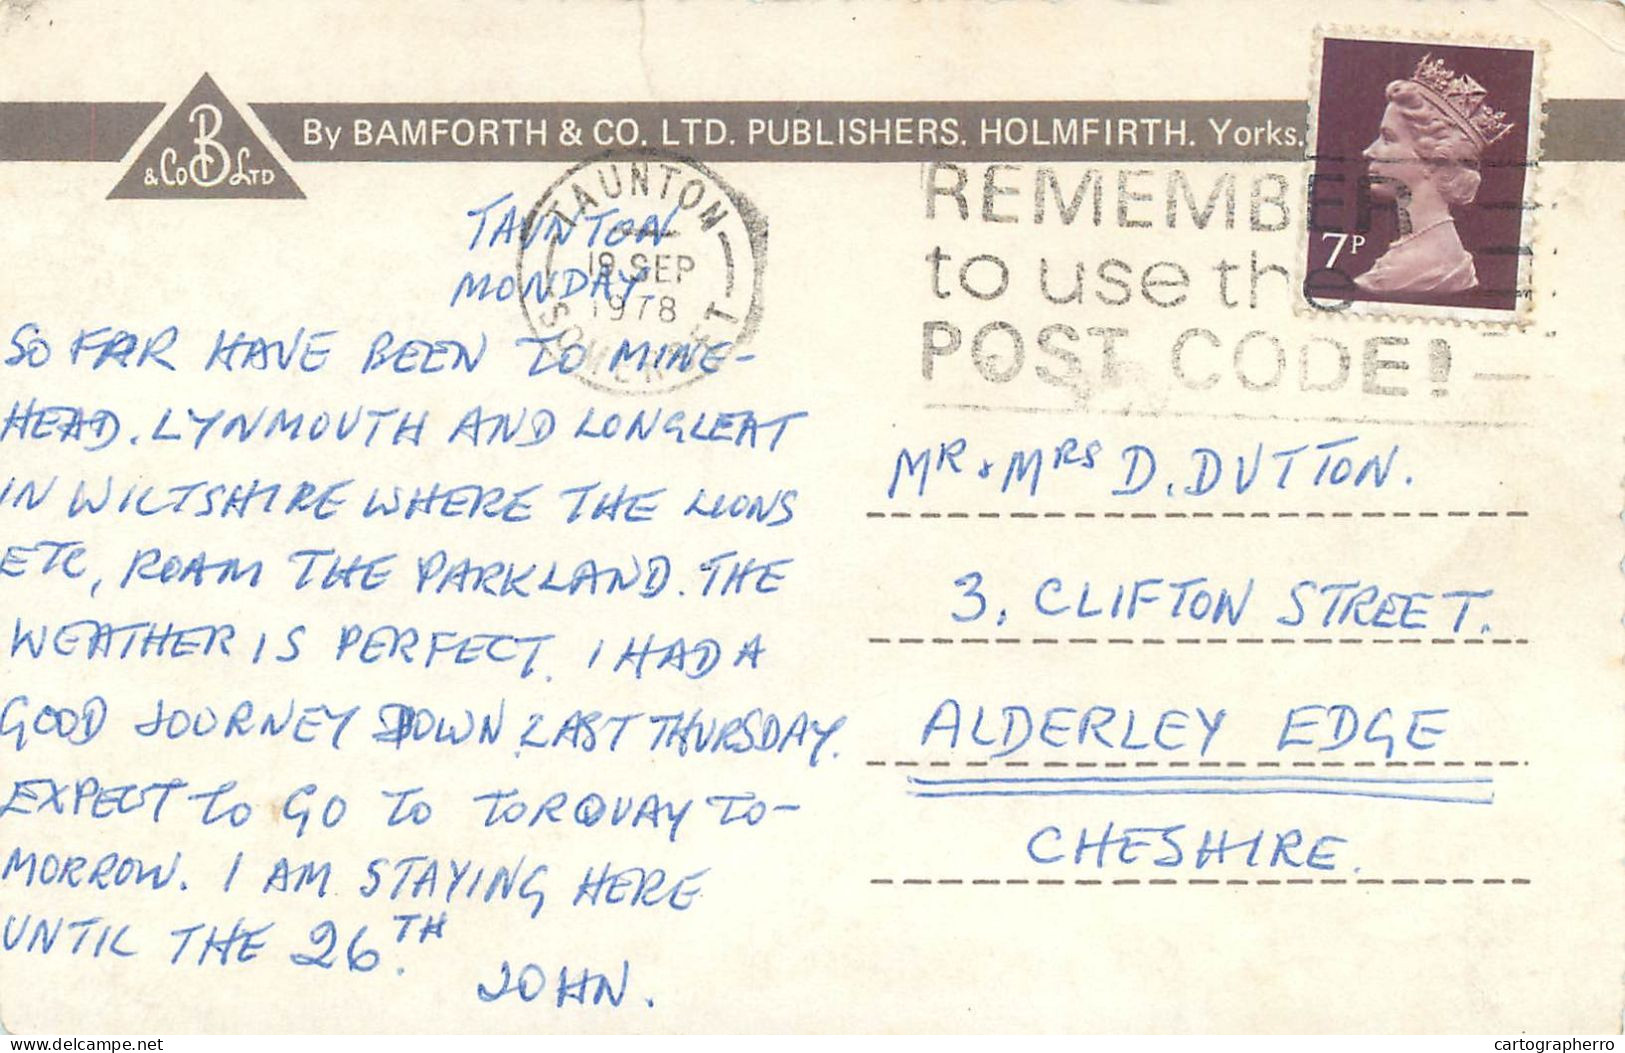 B
& Co LTD
By BAMFORTH & CO. LTD. PUBLISHERS. HOLMFIRTH. Yorks.
TAUNTON
SEP
1978
SOMERSET
REMEMBER
to use the
POST CODE!
7P
TAUNTON
MONDAY
SO FAR HAVE BEEN TO MINE-
HEAD. LYNMOUTH AND LONGLEAT
IN WILTSHIRE WHERE THE LIONS
ETC, ROAM THE PARKLAND. THE
WEATHER IS PERFECT. I HAD A
GOOD JOURNEY DOWN LAST THURSDAY.
EXPECT TO GO TO TORQUAY TO-
MORROW. I AM STAYING HERE
UNTIL THE 26TH.
JOHN.
MR & MRS D. DUTTON.
3, CLIFTON STREET.
ALDERLEY EDGE
CHESHIRE.
www.delcampe.net
cartographerro